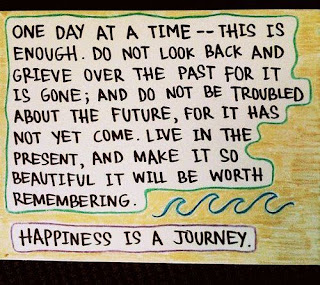 ONE DAY AT A TIME -- THIS IS
ENOUGH. DO NOT LOOK BACK AND
GRIEVE OVER THE PAST FOR IT
IS GONE; AND DO NOT BE TROUBLED
ABOUT THE FUTURE, FOR IT HAS
NOT YET COME. LIVE IN THE
PRESENT, AND MAKE IT SO
BEAUTIFUL IT WILL BE WORTH
REMEMBERING.
HAPPINESS IS A JOURNEY.